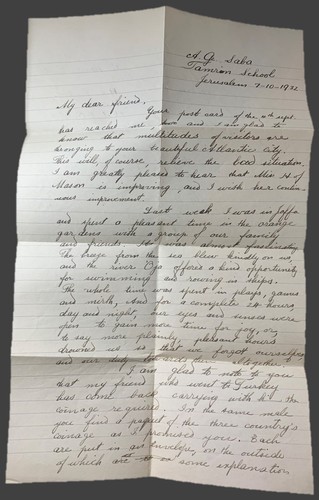 A. G. Saba
School
Jerusalem 7-10-1932
My dear friend.
Your post card of the
has reached me and I am glad to
know that multitudes of visitors are
to your beautiful Atlantic City.
This will, of course, relieve the situation.
I am greatly pleased to hear that Miss
Mason is improving, and I wish her
improvement.
Last week I was in Jaffa
and spent a pleasant time in the orange
gardens with a group of our family
and friends. It was almost
The breeze from the sea blew kindly on us,
and the river offers a kind opportunity
for swimming and rowing in ships.
The whole time was spent in plays, games
and mirth, And for a complete 24 hours
day and night, our eyes and senses were
open to gain more time for joy, or,
to say more plainly, pleasant hours
drowned us so that we forgot ourselves
and our altogether
I am glad to note to you
that my friend who went to Turkey
has come back carrying with him the
coinage required. In the same mail
you find a paquet of the three country's
coinage as I promised you. Each
are put in an envelope, on the outside
of which are some explanation